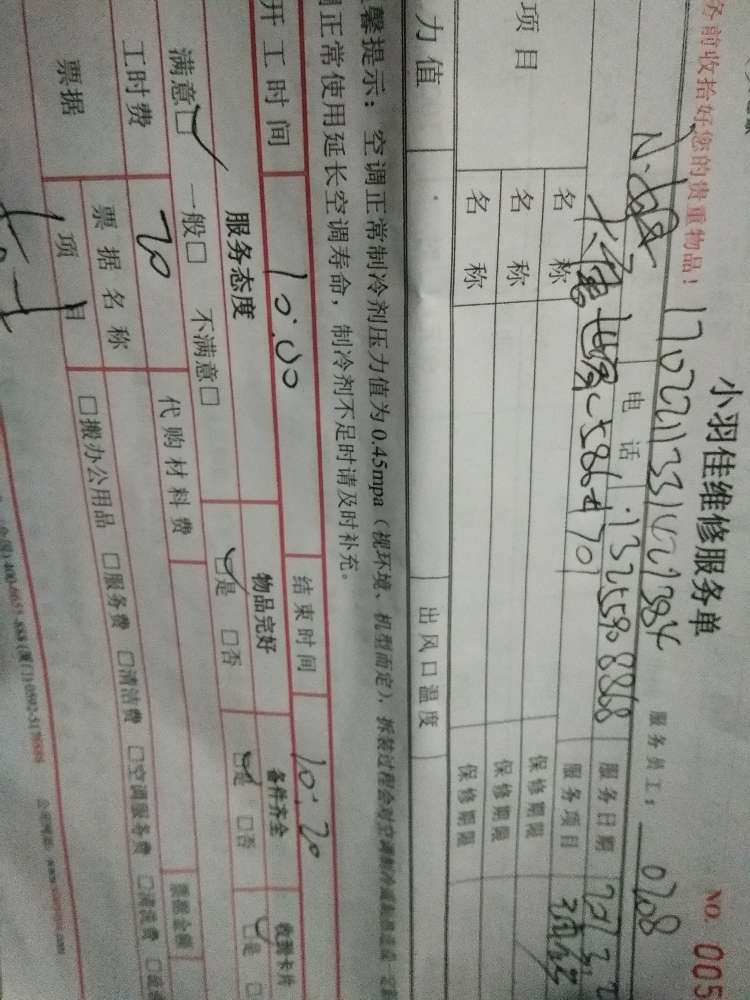 小羽佳维修服务单
NO. 005
务前收拾好您的贵重物品！
服务员工： 0708
电话 13255908868
服务日期
586#701
服务项目
项目
名称
保修期限
名称
保修期限
名称
保修期限
力值
出风口温度
馨提示：空调正常制冷剂压力值为0.45mpa（视环境、机型而定），拆装过程会对空调制冷
正常使用延长空调寿命，制冷剂不足时请及时补充。
开工时间 10:00 结束时间 10:20
服务态度 物品完好 备件齐全 收到卡片
满意□ 一般□ 不满意□ □是 □否 □是 □否 □是
工时费 20 代购材料费
票据 票据名称 票据金额
项目 □搬办公用品 □服务费 □清洁费 □空调服务费 □清洗费